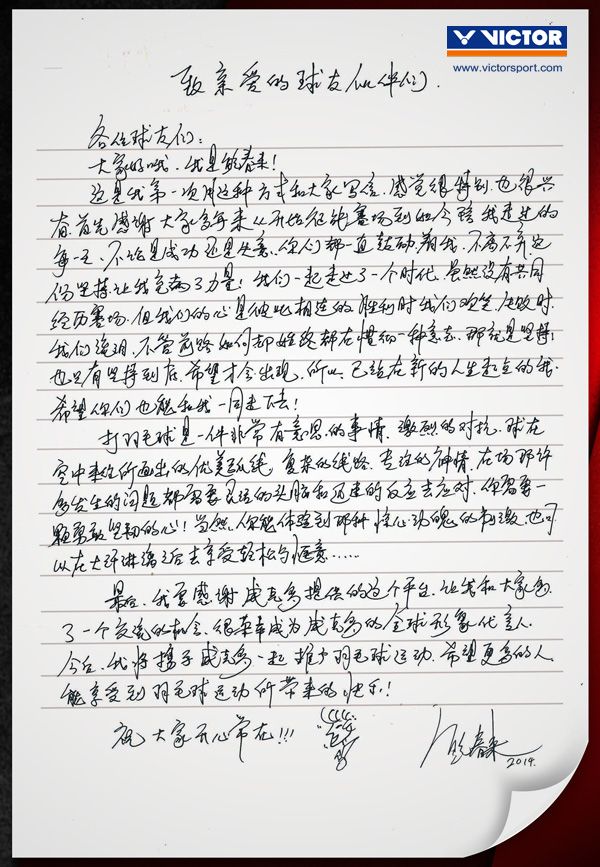 VICTOR
www.victorsport.com
致亲爱的球友伙伴们.
各位球友们:
大家好哦,我是鲍春来!
这是我第一次用这种方式和大家写信,感觉很特别,也很兴
奋.首先感谢大家多年来从开始征战赛场到如今陪我走过的
每一天,不论是成功还是失意,你们都一直鼓励着我,不离不弃.这
份坚持让我充满了力量!我们一起走过了一个时代,虽然没有共同
经历赛场,但我们的心是彼此相连的,胜利时我们欢笑,失败时
我们流泪,不管前路如何却始终都在惯彻一种意志,那就是坚持;
也只有坚持到后,希望才会出现,所以,已站在新的人生起点的我,
希望你们也能和我一同走下去!
打羽毛球是一件非常有意思的事情,激烈的对抗,球在
空中来往所画出的优美弧线,复杂的线路,专注的神情,在场那许
多发生的问题都需要灵活的头脑和迅速的反应去应对,你需要一
颗勇敢坚韧的心!当然,你能体验到那种惊心动魄的刺激,也可
以在大汗淋漓之后去享受轻松与惬意……
最后,我要感谢威克多提供的这个平台,让我和大家多
了一个交流的机会,很荣幸成为威克多的全球形象代言人,
今后,我将携手威克多一起推广羽毛球运动,希望更多的人
能享受到羽毛球运动所带来的快乐!
祝大家开心常在!!!
鲍春来
2014.